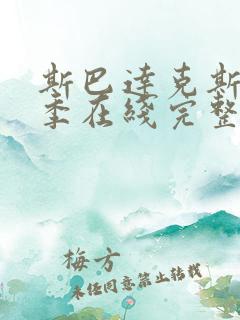 斯巴达克斯
季在线完整
梅方
未经同意禁止转载